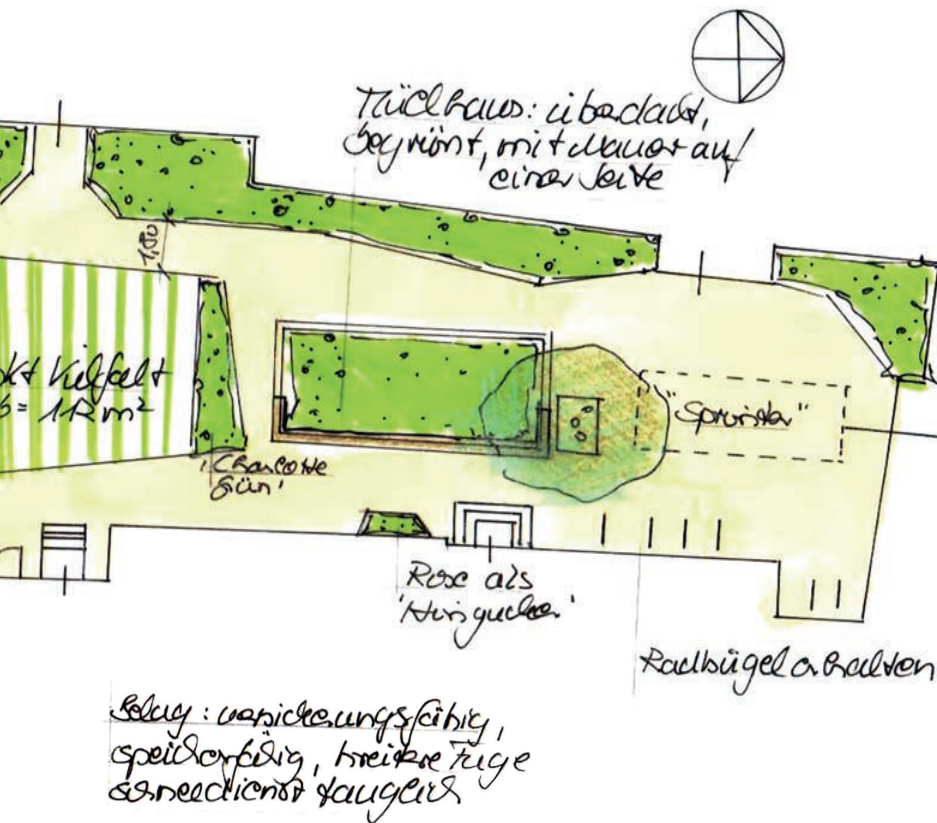 Müllhaus: überdacht,
begrünt, mit Mauer auf
einer Seite
1,80
Vielfalt
= 112 m²
"Sprinter"
'Charlotte
Grün'
Rose als
'Hingucker'
Radbügel erhalten
Belag: versickerungsfähig,
speicherfähig, breitere Fuge
schneedienst tauglich